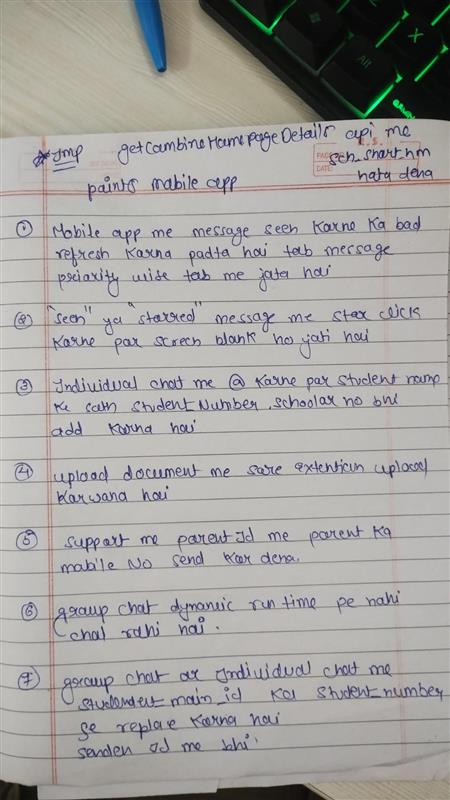 Imp getCombineHomePageDetails api me
sch_short_nm
hata dena
points mobile app
① Mobile app me message seen karne ka bad
refresh karna padta hai tab message
priority wise tab me jata hai
② "seen" ya "starred" message me star click
karne par screen blank ho jati hai
③ Individual chat me @ karne par student name
ke sath student_number, schoolar no bhi
add karna hai
④ upload document me sare extention upload
karwana hai
⑤ support me parent_Id me parent ka
mobile No send kar dena.
⑥ group chat dynamic run time pe nahi
chal rahi hai.
⑦ group chat or Individual chat me
main_id ka student_number
se replace karna hai
sender Id me bhi.
Alt